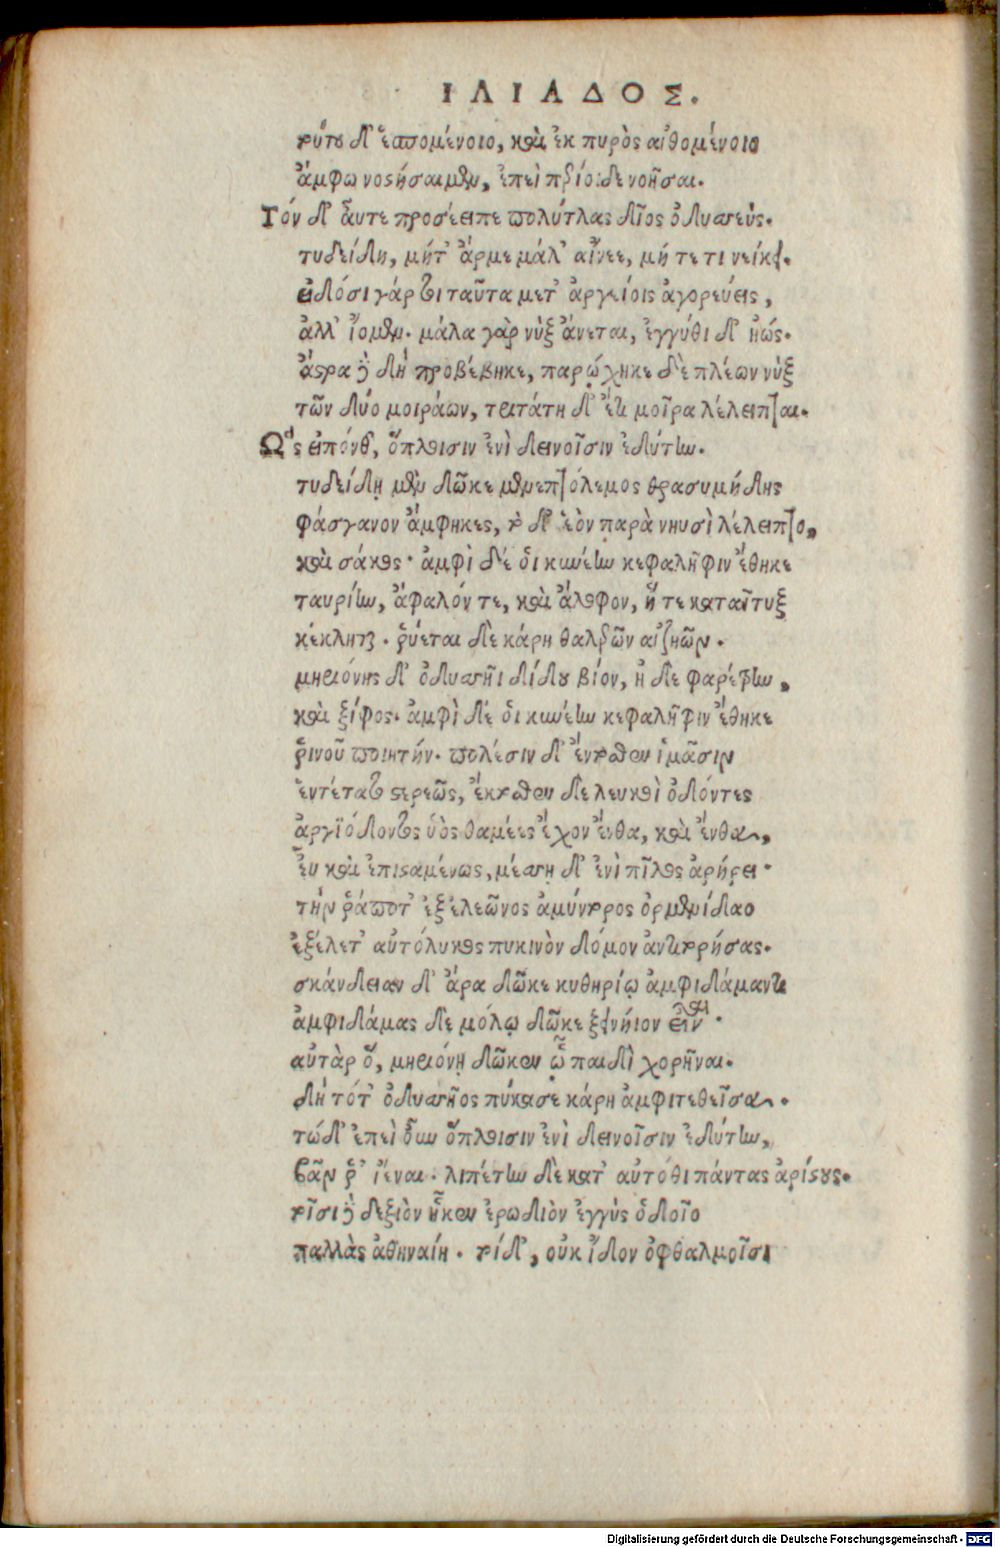 ΙΛΙΑΔΟΣ.
τούτου δ' ἑσπομένοιο, καὶ ἐκ πυρὸς αἰθομένοιο
ἄμφω νοστήσαιμεν, ἐπεὶ περίοιδε νοῆσαι.
Τόν δ' αὖτε προσέειπε πολύτλας δῖος ὀδυσσεύς.
τυδείδη, μήτ' ἄρ με μάλ' αἴνεε, μή τε τι νείκει.
εἰδόσι γάρ τοι ταῦτα μετ' ἀργείοις ἀγορεύεις,
ἀλλ' ἴομεν. μάλα γὰρ νὺξ ἄνεται, ἐγγύθι δ' ἠώς.
ἄστρα δὲ δὴ προβέβηκε, παρῴχηκε δὲ πλέων νὺξ
τῶν δύο μοιράων, τριτάτη δ' ἔτι μοῖρα λέλειπται.
Ὣς εἰπόνθ', ὅπλοισιν ἐνὶ δεινοῖσιν ἐδύτην.
τυδείδῃ μὲν δῶκε μενεπτόλεμος θρασυμήδης
φάσγανον ἄμφηκες, τὸ δ' ἑὸν παρὰ νηυσὶ λέλειπτο,
καὶ σάκος· ἀμφὶ δέ οἱ κυνέην κεφαλῆφιν ἔθηκε
ταυρίην, ἄφαλόν τε, καὶ ἄλοφον, ἥ τε καταῖτυξ
κέκληται. ῥύεται δὲ κάρη θαλερῶν αἰζηῶν.
μηριόνης δ' ὀδυσσῆϊ δίδου βιόν, ἠδὲ φαρέτρην,
καὶ ξίφος. ἀμφὶ δέ οἱ κυνέην κεφαλῆφιν ἔθηκε
ῥινοῦ ποιητήν. πολέσιν δ' ἔντοσθεν ἱμᾶσιν
ἐντέτατο στερεῶς, ἔκτοσθεν δὲ λευκοὶ ὀδόντες
ἀργϊόδοντος ὑὸς θαμέες ἔχον ἔνθα, καὶ ἔνθα,
εὖ καὶ ἐπισταμένως, μέσσῃ δ' ἐνὶ πῖλος ἀρήρει·
τήν ῥά ποτ' ἐξ ἐλεῶνος ἀμύντορος ὀρμενίδαο
ἐξέλετ' αὐτόλυκος πυκινὸν δόμον ἀντιτορήσας.
σκάνδειαν δ' ἄρα δῶκε κυθηρίῳ ἀμφιδάμαντι
ἀμφιδάμας δὲ μόλῳ δῶκε ξεινήϊον εἶναι.
αὐτὰρ ὅ, μηριόνῃ δῶκεν ᾧ παιδὶ φορῆναι.
δὴ τότ' ὀδυσσῆος πύκασε κάρη ἀμφιτεθεῖσα.
τώδ' ἐπεὶ οὖν ὅπλοισιν ἐνὶ δεινοῖσιν ἐδύτην,
βάν ῥ' ἴεναι. λιπέτην δὲ κατ' αὐτόθι πάντας ἀρίστους.
τοῖσι δὲ δεξιὸν ἧκεν ἐρωδιὸν ἐγγὺς ὁδοῖο
παλλὰς ἀθηναίη. τοί δ', οὐκ ἴδον ὀφθαλμοῖσι
Digitalisierung gefördert durch die Deutsche Forschungsgemeinschaft - DFG